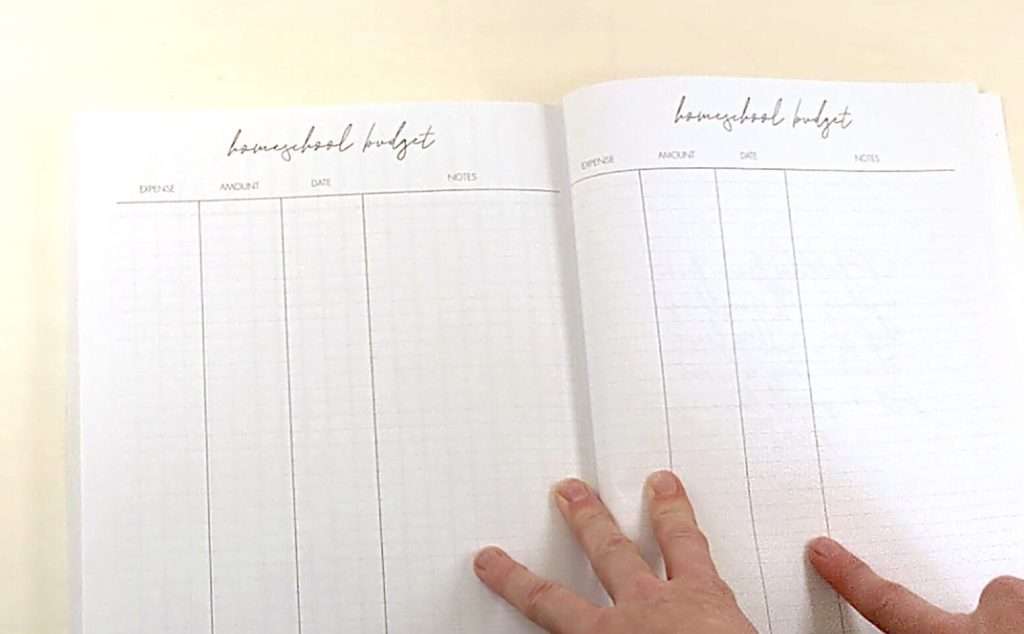 homeschool budget
EXPENSE AMOUNT DATE NOTES
homeschool budget
EXPENSE AMOUNT DATE NOTES